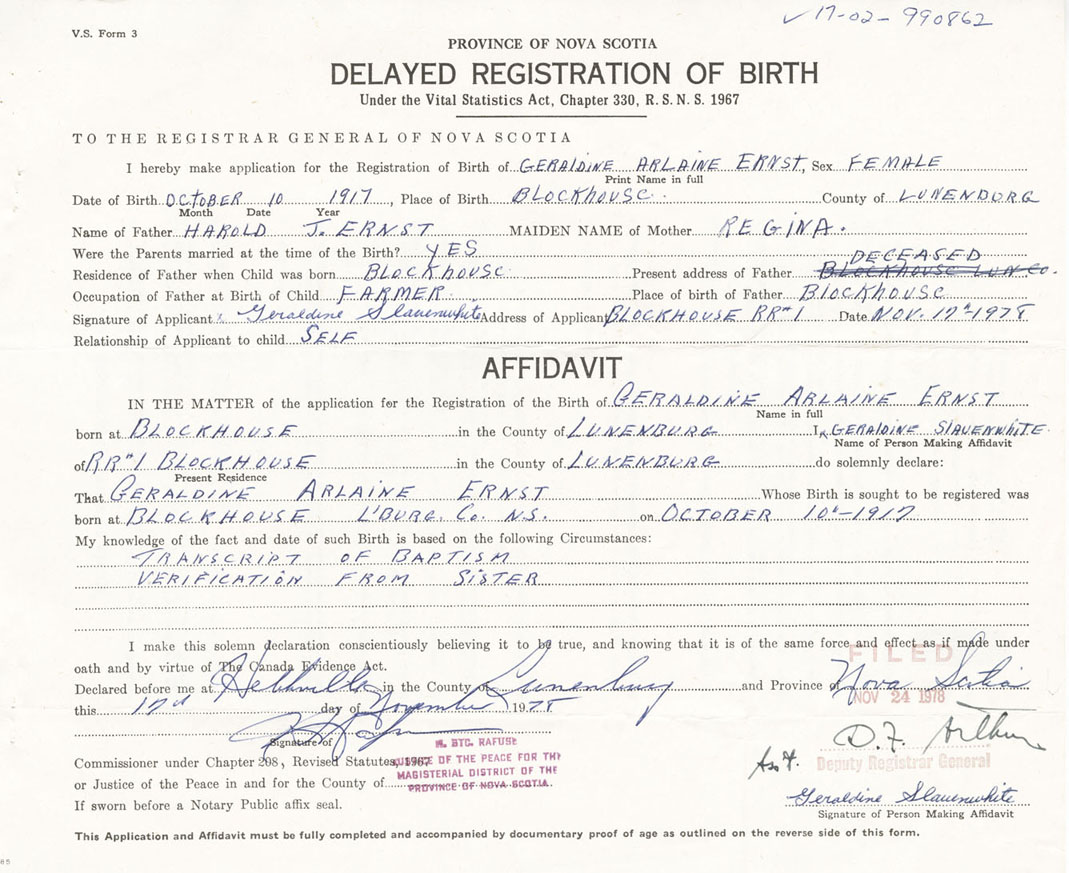 ✓ 17-02-990862
V.S. Form 3
PROVINCE OF NOVA SCOTIA
DELAYED REGISTRATION OF BIRTH
Under the Vital Statistics Act, Chapter 330, R.S.N.S. 1967
TO THE REGISTRAR GENERAL OF NOVA SCOTIA
I hereby make application for the Registration of Birth of GERALDINE ARLAINE ERNST, Sex FEMALE
Print Name in full
Date of Birth OCTOBER 10 1917, Place of Birth BLOCKHOUSE. County of LUNENBURG
Month Date Year
Name of Father HAROLD J. ERNST MAIDEN NAME of Mother REGINA.
Were the Parents married at the time of the Birth? YES DECEASED
Residence of Father when Child was born BLOCKHOUSE Present address of Father BLOCKHOUSE LUN CO.
Occupation of Father at Birth of Child FARMER. Place of birth of Father BLOCKHOUSE
Signature of Applicant Geraldine Slauenwhite Address of Applicant BLOCKHOUSE RR#1 Date NOV. 17th-1978
Relationship of Applicant to child SELF
AFFIDAVIT
IN THE MATTER of the application for the Registration of the Birth of GERALDINE ARLAINE ERNST
Name in full
born at BLOCKHOUSE in the County of LUNENBURG I, GERALDINE SLAUENWHITE.
Name of Person Making Affidavit
of RR#1 BLOCKHOUSE in the County of LUNENBURG do solemnly declare:
Present Residence
That GERALDINE ARLAINE ERNST Whose Birth is sought to be registered was
born at BLOCKHOUSE L'BURG. CO. N.S. on OCTOBER 10th-1917
My knowledge of the fact and date of such Birth is based on the following Circumstances:
TRANSCRIPT OF BAPTISM
VERIFICATION FROM SISTER
I make this solemn declaration conscientiously believing it to be true, and knowing that it is of the same force and effect as if made under
oath and by virtue of The Canada Evidence Act.
FILED
Declared before me at in the County of Lunenburg and Province of Nova Scotia
NOV 24 1978
this 17th day of November 1978
Signature of
D.F. Arthur
Asst. Deputy Registrar General
Commissioner under Chapter 208, Revised Statutes, 1967
or Justice of the Peace in and for the County of
RAFUSE
JUSTICE OF THE PEACE FOR THE
MAGISTERIAL DISTRICT OF THE
PROVINCE OF NOVA SCOTIA.
If sworn before a Notary Public affix seal.
Geraldine Slauenwhite
Signature of Person Making Affidavit
This Application and Affidavit must be fully completed and accompanied by documentary proof of age as outlined on the reverse side of this form.